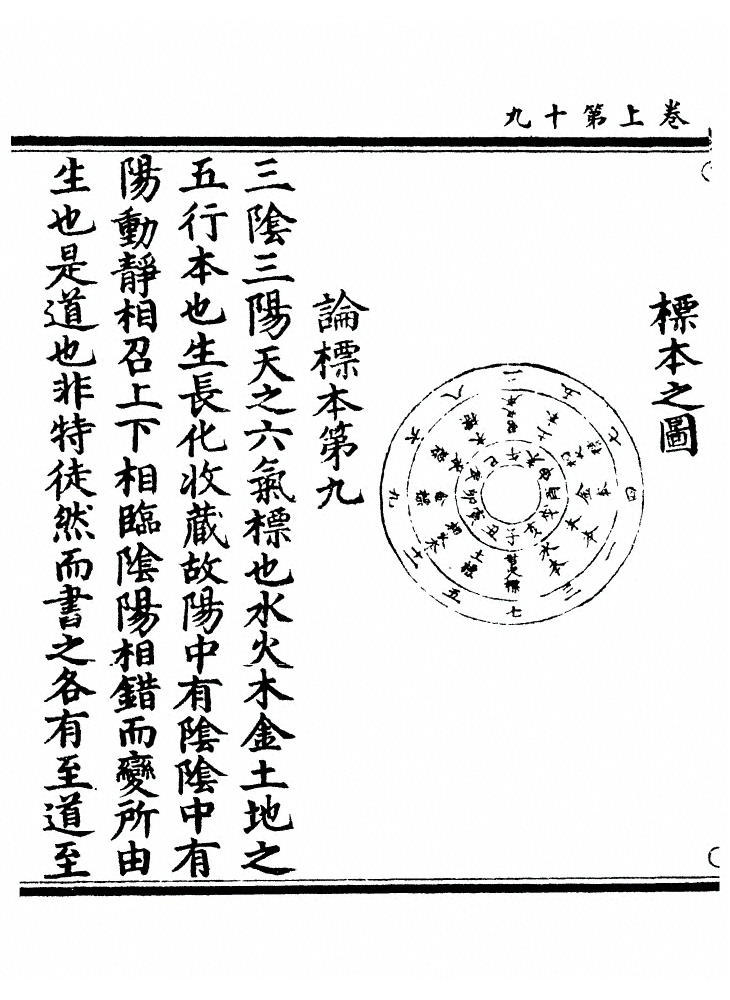 卷上第十九
標本之圖
論標本第九
三陰三陽天之六氣標也水火木金土地之
五行本也生長化收藏故陽中有陰陰中有
陽動靜相召上下相臨陰陽相錯而變所由
生也是道也非特徒然而書之各有至道至